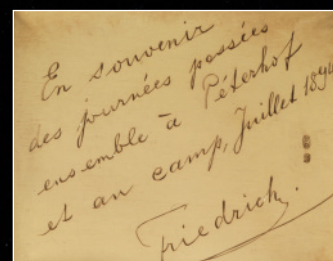 En souvenir
des journées passées
ensemble à Péterhof
et au camp, Juillet 189
Friedrich.